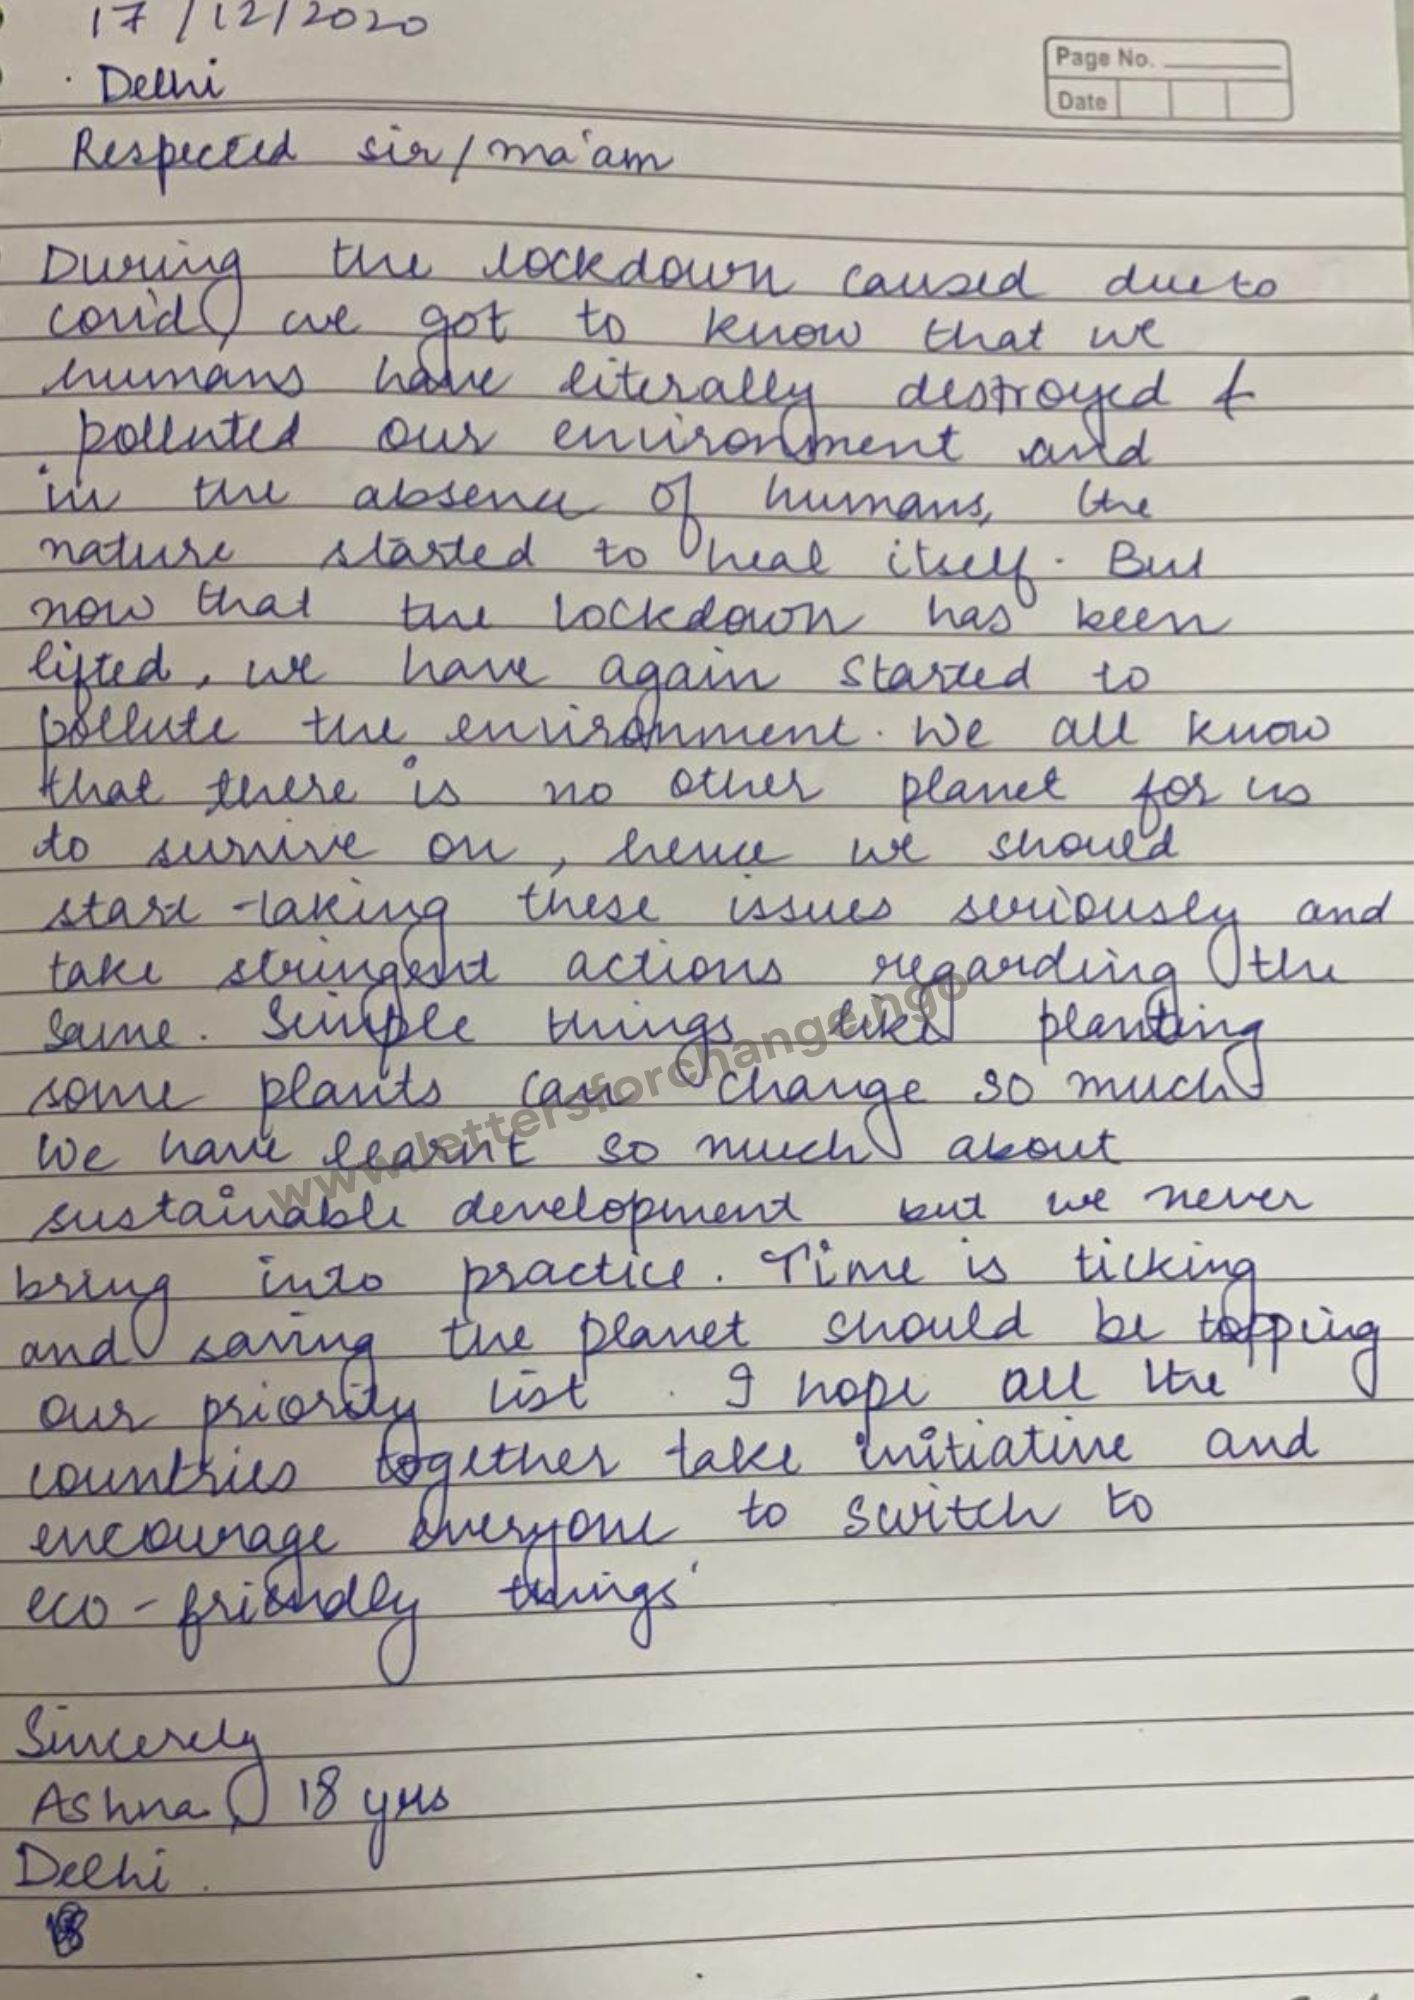 17/12/2020
Page No.
Delhi
Date
Respected sir/ma'am
During the lockdown caused due to
covid, we got to know that we
humans have literally destroyed &
polluted our environment and
in the absence of humans, the
nature started to heal itself. But
now that the lockdown has been
lifted, we have again started to
pollute the environment. We all know
that there is no other planet for us
to survive on, hence we should
start taking these issues seriously and
take stringent actions regarding the
same. Simple things like planting
some plants can change so much
We have learnt so much about
sustainable development but we never
bring into practice. Time is ticking
and saving the planet should be topping
our priority list. I hope all the
countries together take initiative and
encourage everyone to switch to
eco-friendly things
Sincerely
Ashna, 18 yrs
Delhi.
www.lettersforchange.ngo